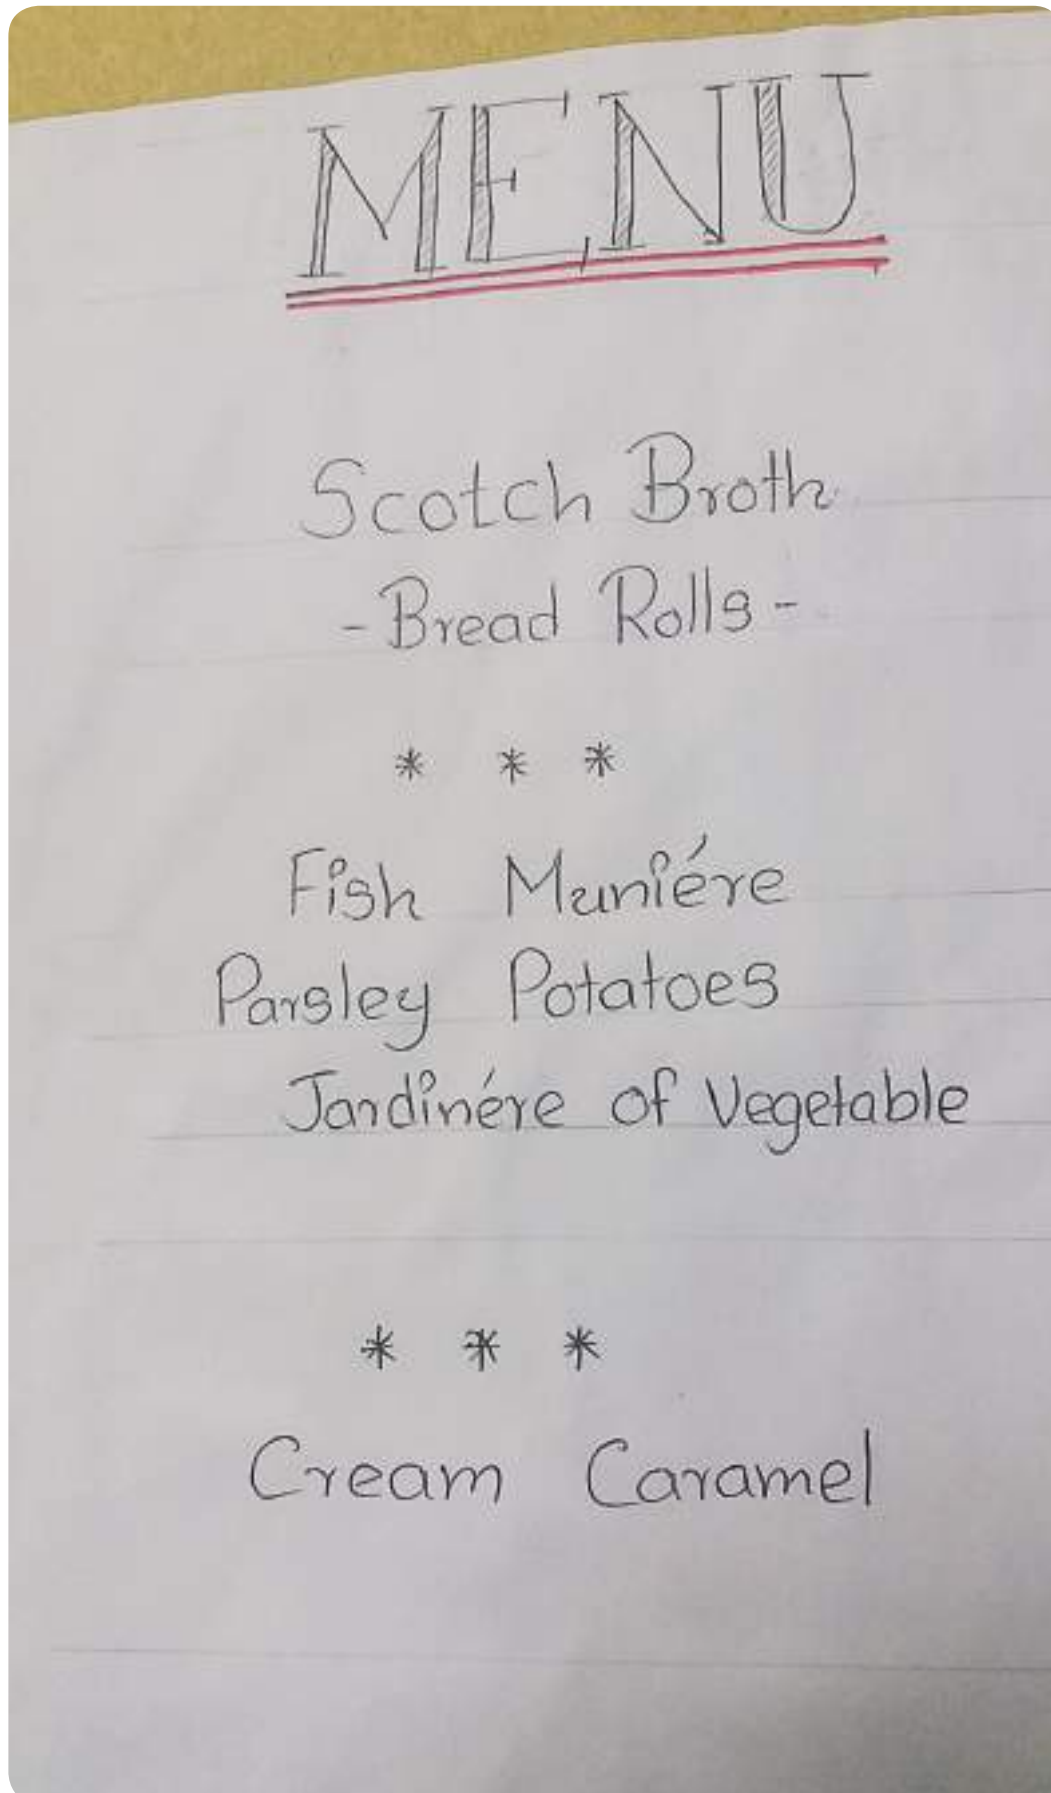 MENU
Scotch Broth
- Bread Rolls -
* * *
Fish Muniére
Parsley Potatoes
Jardinére of Vegetable
* * *
Cream Caramel